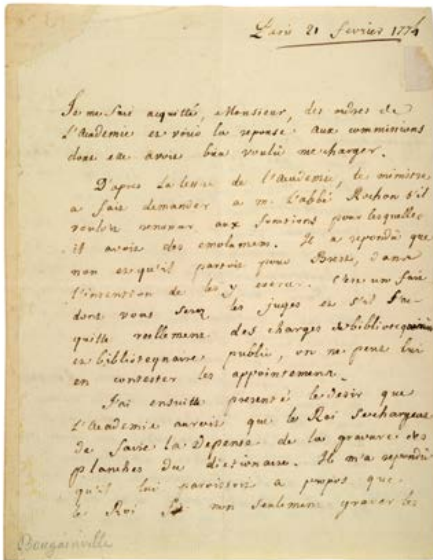 Paris 21 fevrier 1774
Je me suis acquitté, Monsieur, des ordres de
L'Academie et voicy la reponse aux commissions
dont elle avoit bien voulu me charger.
D'apres la lettre de l'Academie, le ministre
a fait demander a m. L'abbé Rochon s'il
vouloit renoncer aux fonctions pour lesquelles
il avoit des emolumens. Il a repondu que
non et qu'il partoit pour Brest, dans
l'intention de les y exercer. C'est un fait
dont vous serez les juges et s'il s'ac
quitte reellement des charges de
et bibliothequaire public, on ne peut lui
en contester les appointemens.
J'ai ensuitte presenté le desir que
L'Academie auroit que le Roi se chargeat
de faire la depense de la gravure des
planches du dictionaire. Il m'a repondu
qu'il lui paroissoit a propos que
le Roi fit non seulement graver les
Bougainville